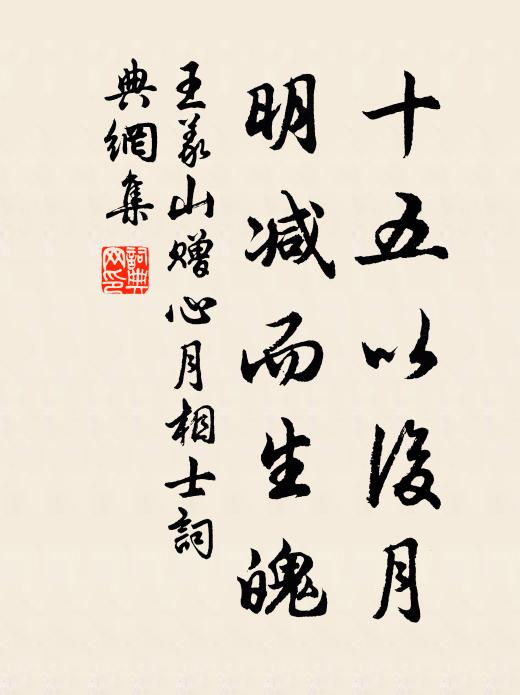 十五以後月
明减而生魄
王義山贈心月相士詞
典網集
詞典網印